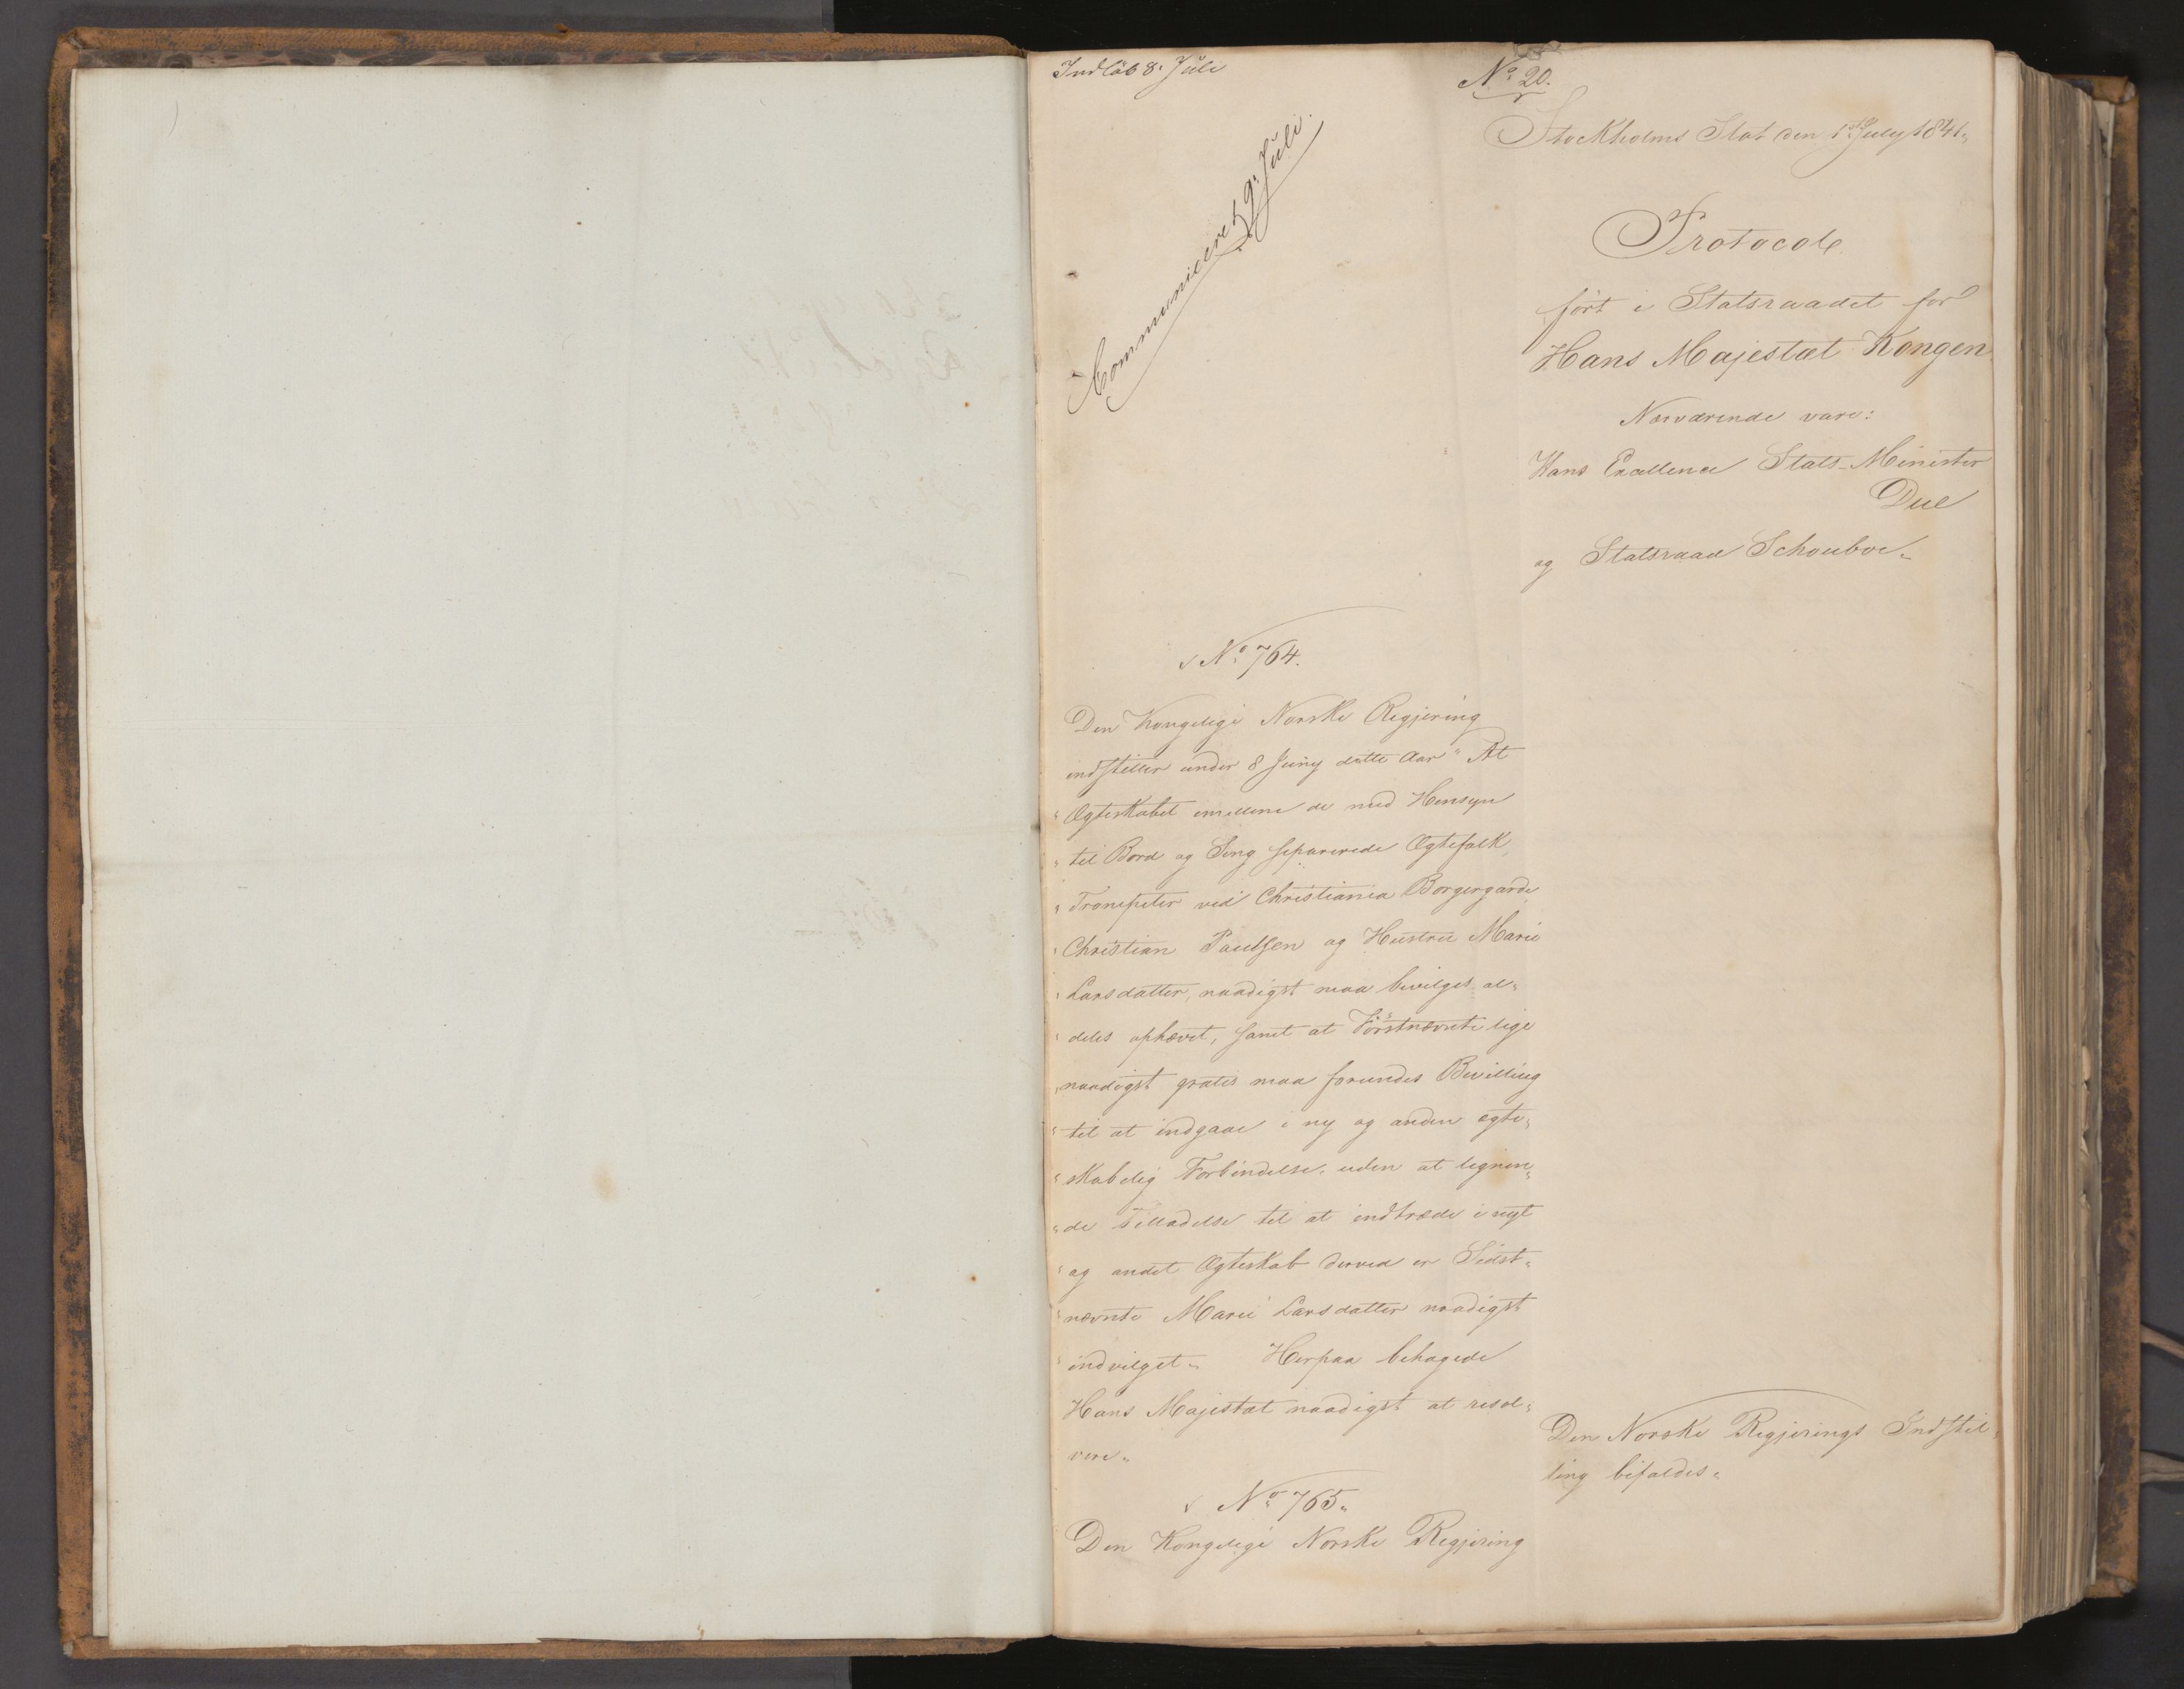 Indløb 8. Juli
No 20.
Communiceret 9. Juli.
Stockholms Slot den 1ste July 1841.
Protocol
ført i Statsraadet for
Hans Majestæt Kongen
Nærværende vare:
Hans Excellence Stats-Minister
Due
og Statsraad Schouboe.
No 764.
Den Kongelige Norske Regjering
indstiller under 8 Juny dette Aar "At
" Ægteskabet imellem de med Hensyn
" til Bord og Seng separerede Ægtefolk,
" Trompeter ved Christiania Borgergarde
" Christian Paulsen og Hustru Marie
" Larsdatter, naadigst maa bevilges al-
" deles ophævet, samt at Førstnævnte lige
" naadigst gratis maa forundes Bevilling
" til at indgaae i ny og anden ægte-
" skabelig Forbindelse, uden at lignen-
" de Tilladelse til at indtræde i nyt
" og andet Ægteskab derved er Sidst-
" nævnte Marie Larsdatter naadigst
" indvilget". Herpaa behagede
Hans Majestæt naadigst at resol-
vere.
Den Norske Regjerings Indstil-
ling bifaldes.
No 765.
Den Kongelige Norske Regjering